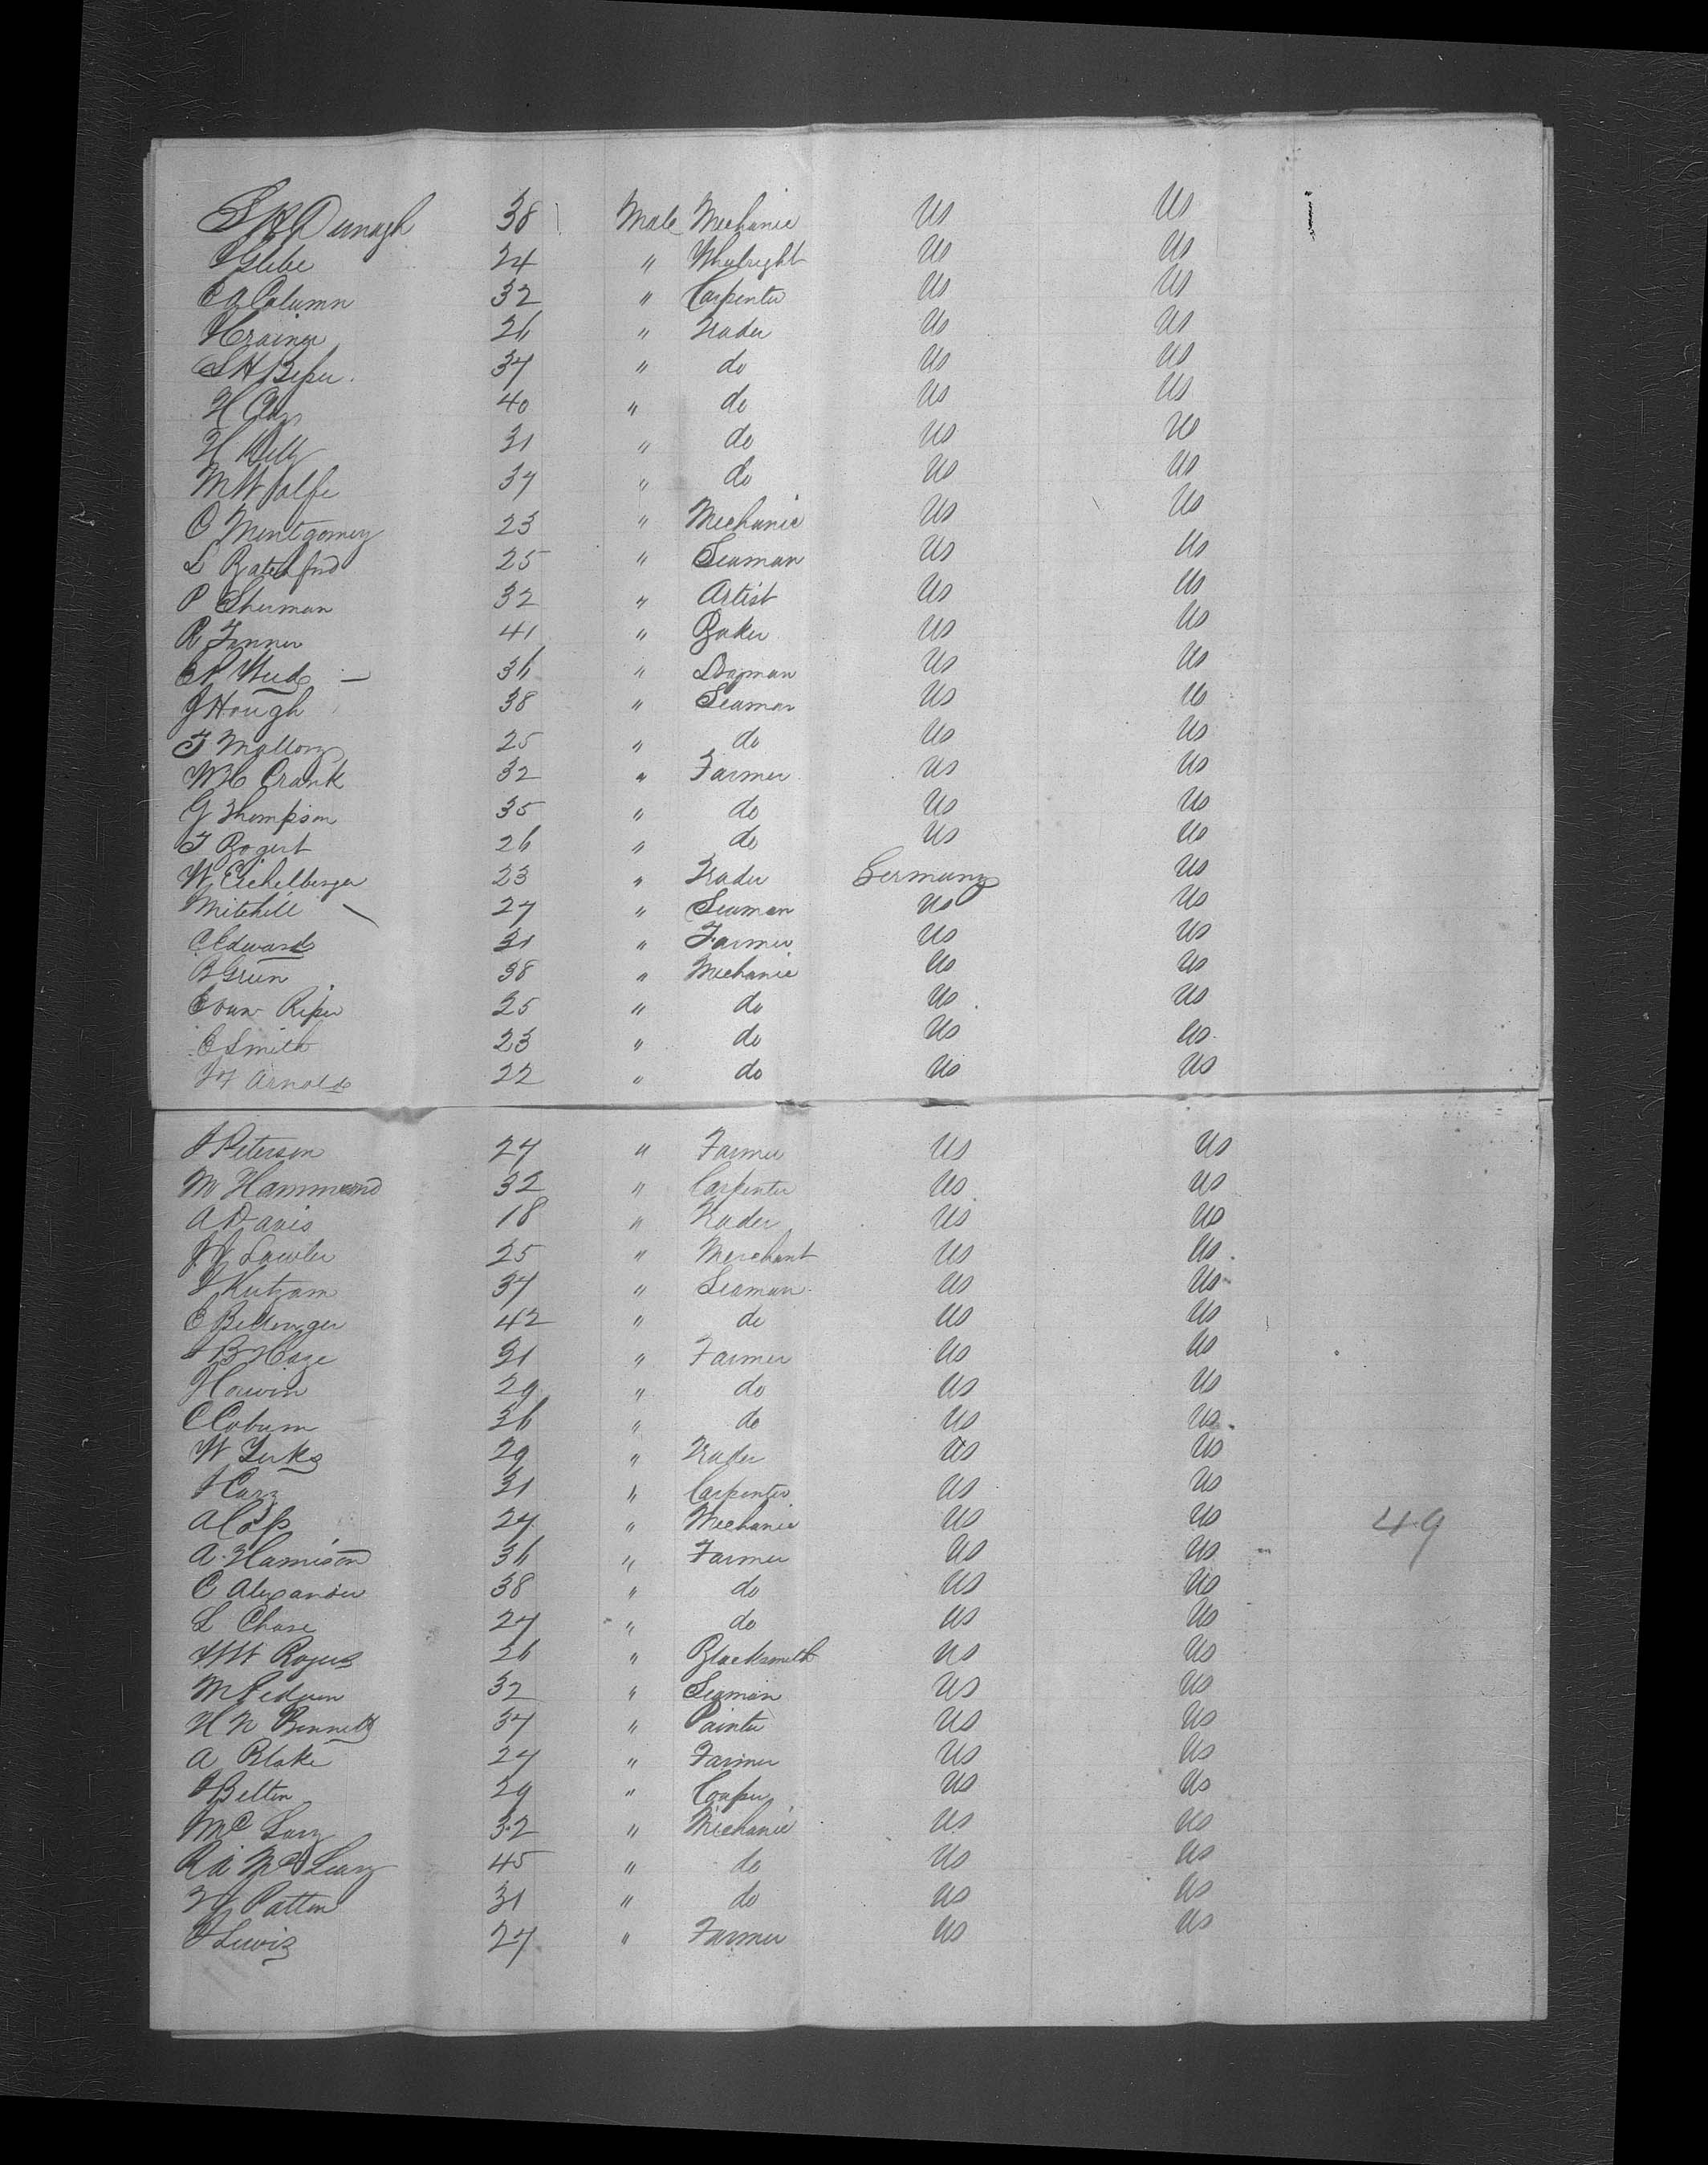 38 Male Mechanic US US
Glebe 24 " Whelright US US
C A Column 32 " Carpenter US US
26 " Trader US US
S H 37 " do US US
H Clay 40 " do US US
H Kelly 31 " do US US
M Wolfe 37 " do US US
O Montgomery 23 " Mechanic US US
L Ratchford 25 " Seaman US US
P Sherman 32 " Artist US US
R Tanner 41 " Baker US US
36 " US US
J Hough 38 " Seaman US US
F Mallory 25 " do US US
W H Crank 32 " Farmer US US
G Thompson 35 " do US US
F Bogert 26 " do US US
W Eichelberger 23 " Trader Germany US
Mitchell 27 " Seaman US US
C Edwards 31 " Farmer US US
B Green 38 " Mechanic US US
C van Riper 25 " do US US
C Smith 23 " do US US
Arnolds 22 " do US US
J Peterson 27 " Farmer US US
M Hammond 32 " Carpenter US US
A Davis 18 " Trader US US
Lawler 25 " Merchant US US
37 " Seaman US US
C Bellenger 42 " do US US
31 " Farmer US US
29 " do US US
C Coburn 36 " do US US
W 29 " Trader US US
31 " Carpenter US US
27 " Mechanic US US 49
A Hamison 36 " Farmer US US
C Alexander 38 " do US US
L Chase 27 " do US US
Rogers 26 " Blacksmith US US
32 " Seaman US US
H N Bennett 37 " Painter US US
A Blake 27 " Farmer US US
J Belton 29 " Cooper US US
32 " Mechanic US US
45 " do US US
Patten 31 " do US US
J Lewis 27 " Farmer US US